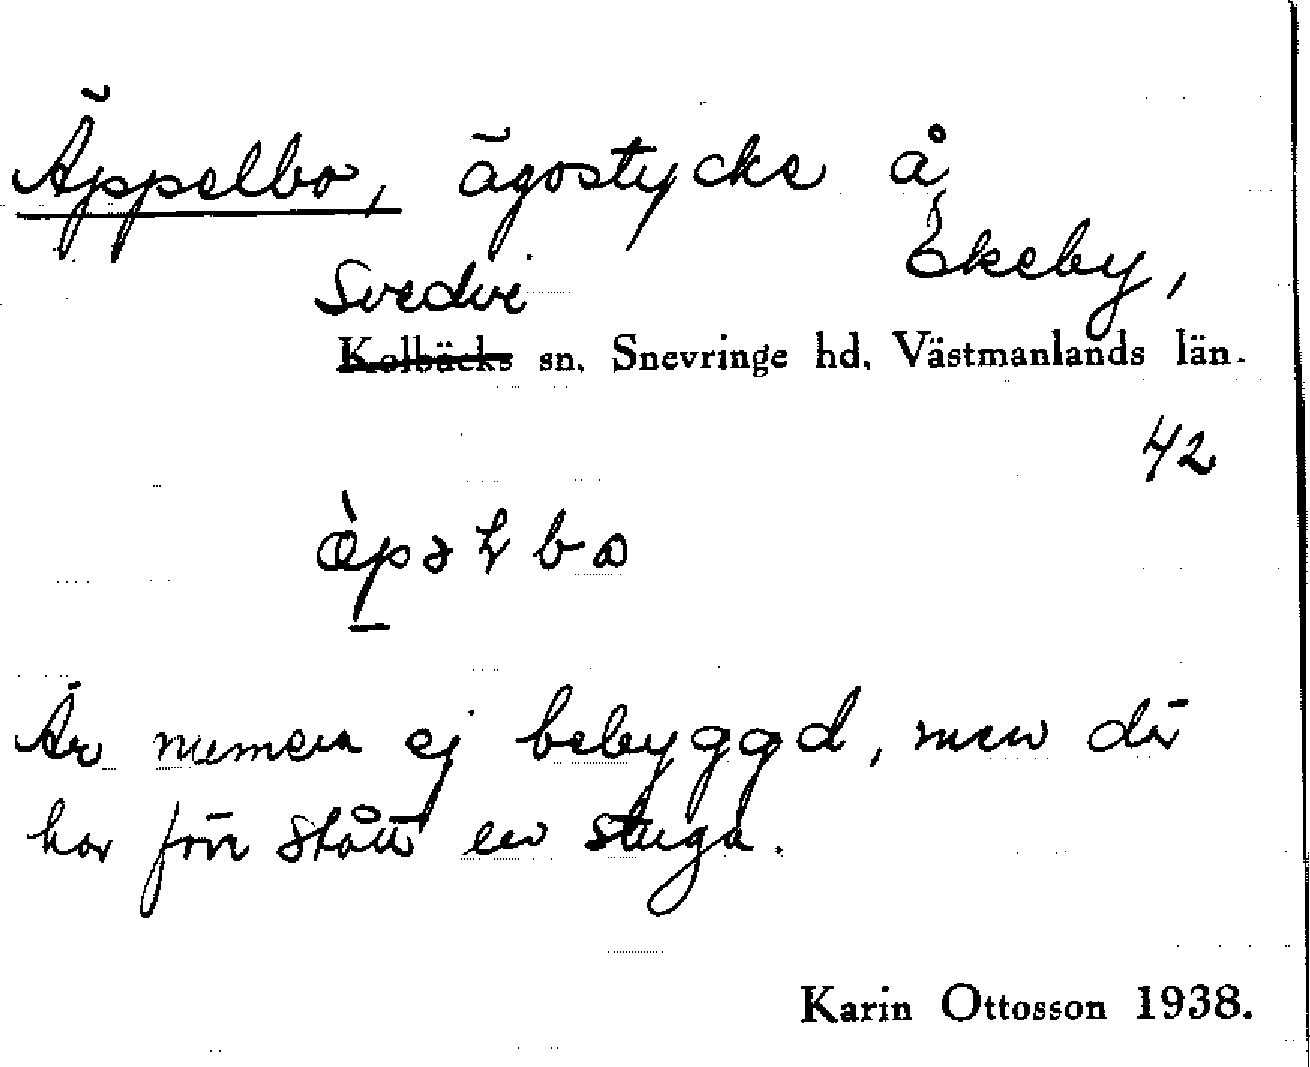 Äppelbo, ägostycke å
Ekeby,
Svedvi
Kolbäcks sn. Snevringe hd. Västmanlands län.
42
Är numera ej bebyggd, men där
har förr stått en stuga.
Karin Ottosson 1938.